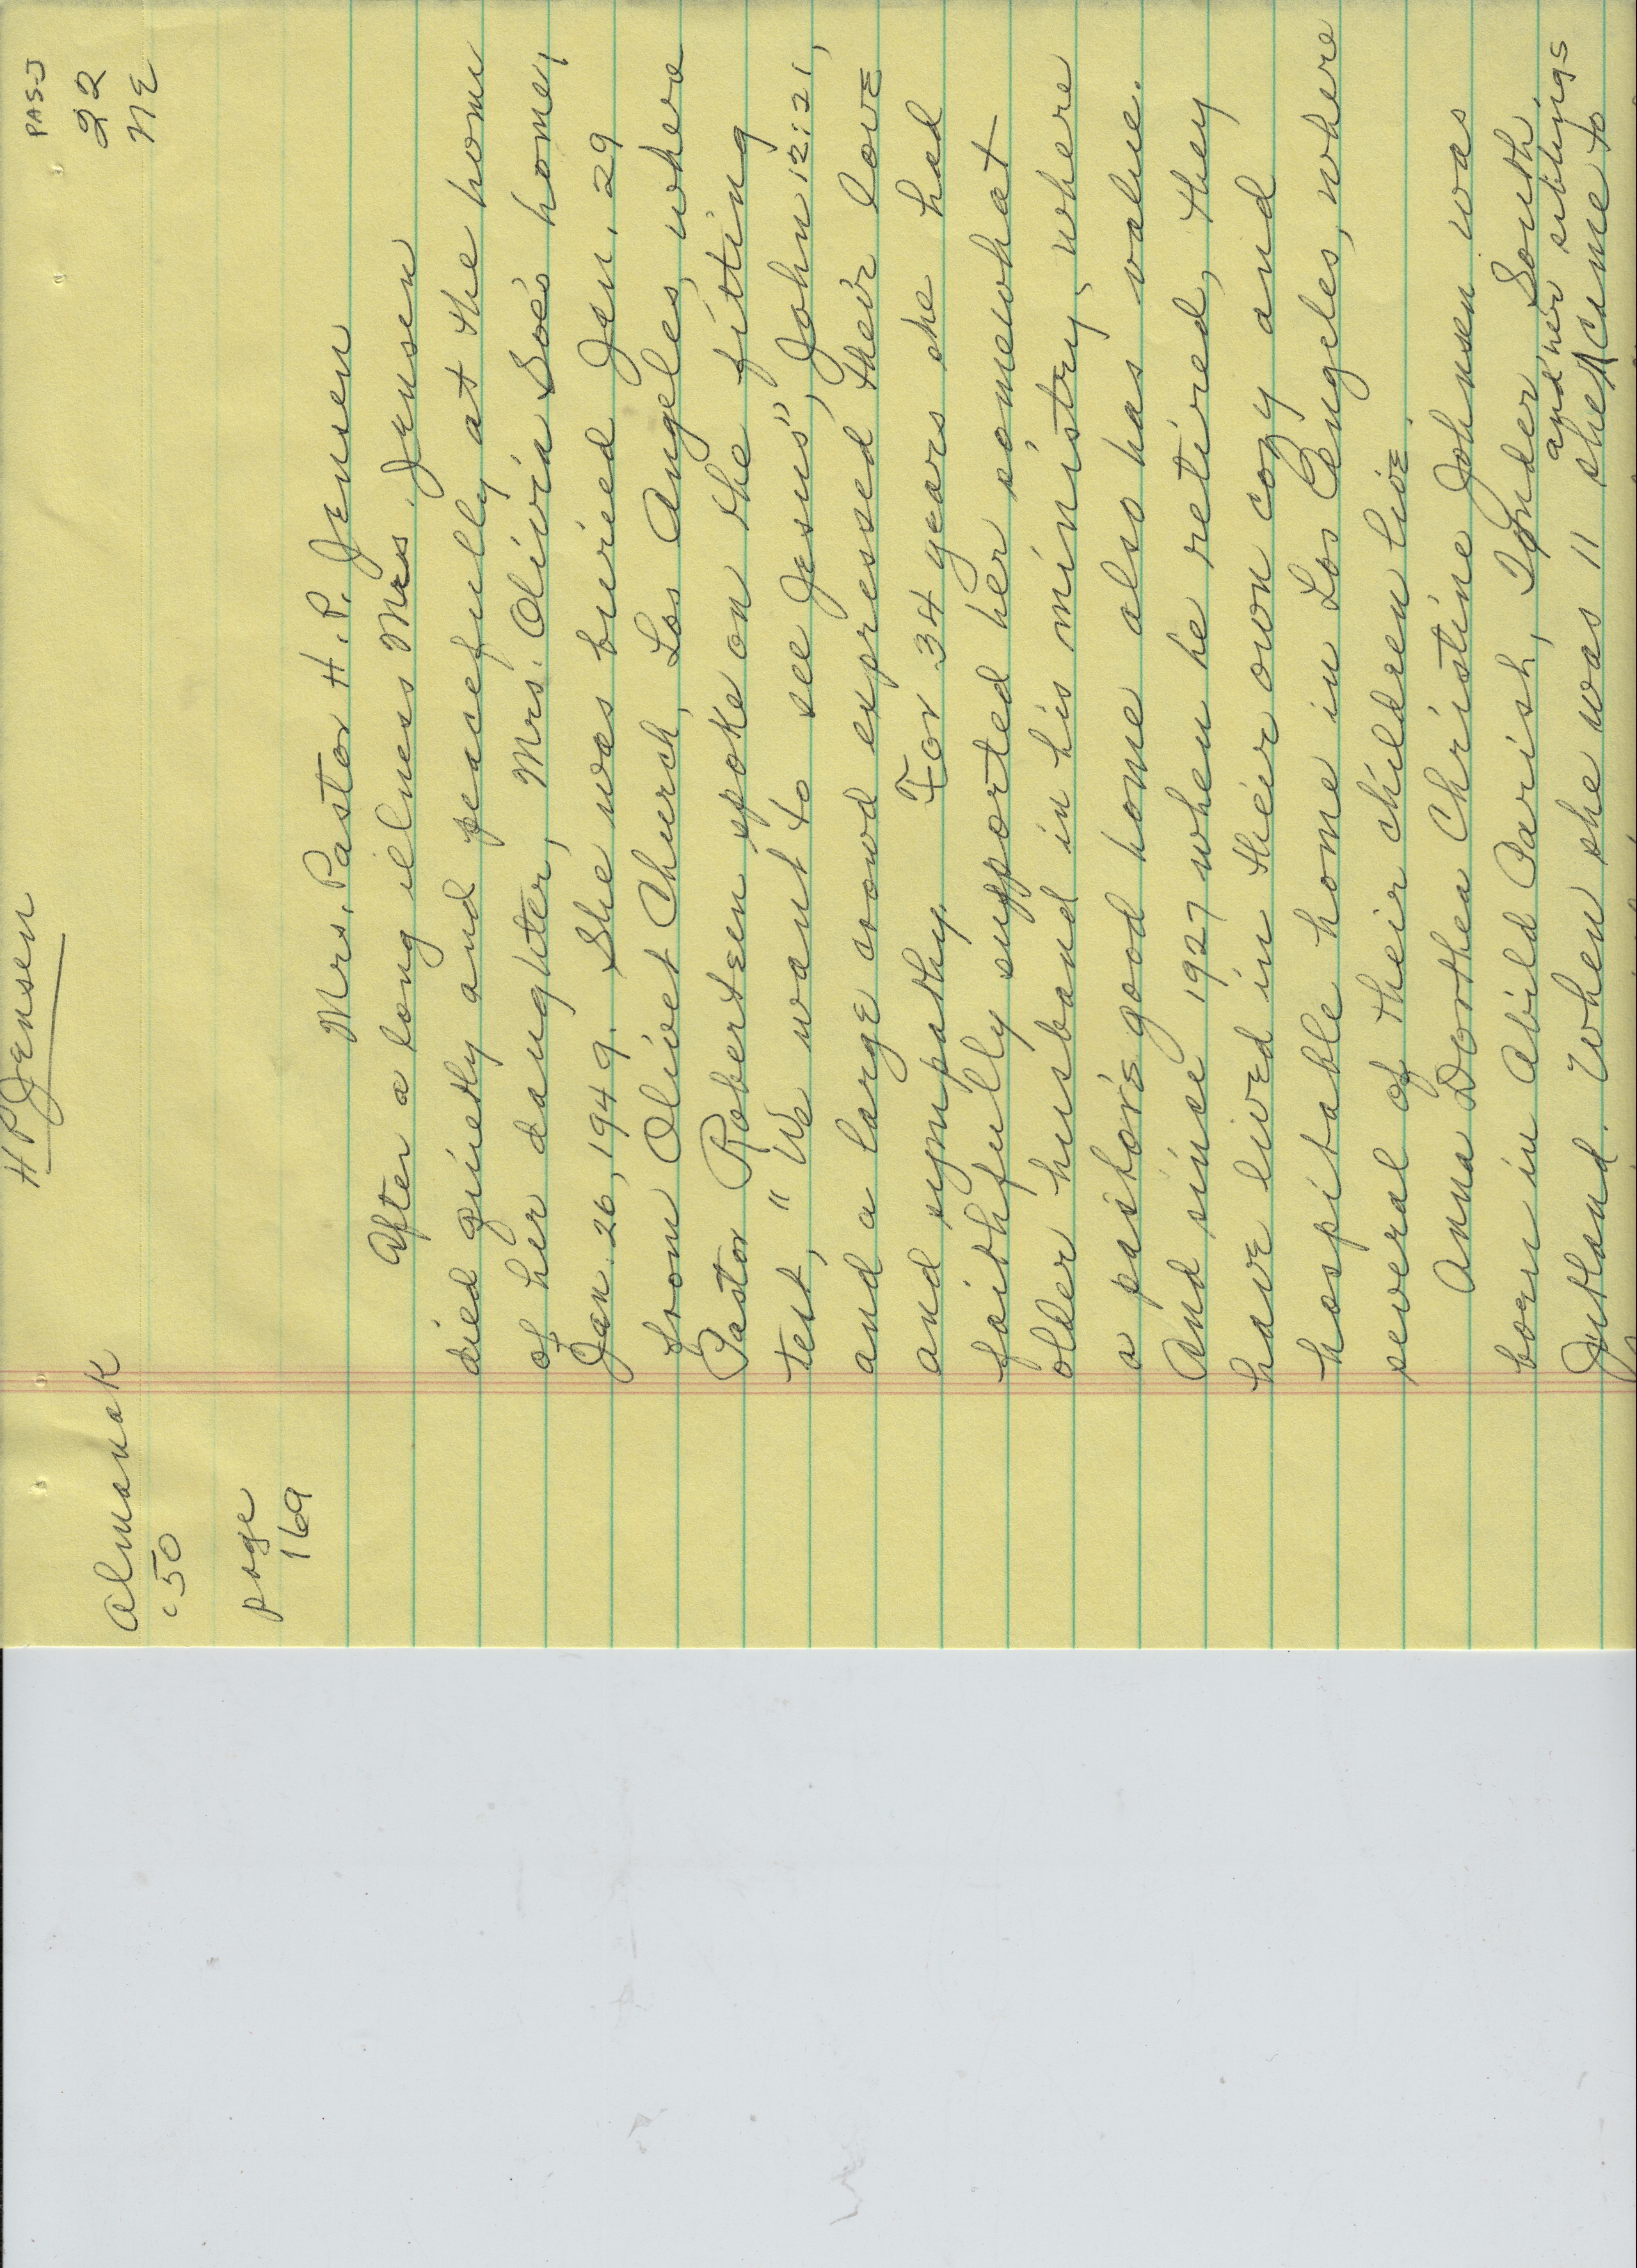 H P Jensen
PASJ
22
NE
Almanak
'50
page
169
Mrs. Pastor H. P. Jensen
After a long illness Mrs. Jensen
died quietly and peacefully at the home
of her daughter, Mrs. Olivia Soe's home,
Jan. 26, 1949. She was buried Jan. 29
from Olivet Church, Los Angeles, where
Pastor Robertsen spoke on the fitting
text, "We want to see Jesus", John 12:21,
and a large crowd expressed their love
and sympathy. For 34 years she had
faithfully supported her somewhat
older husband in his ministry, where
a pastor's good home also has value.
And since 1927 when he retired, they
have lived in their own cozy and
hospitable home in Los Angeles, where
several of their children live.
Anna Dorthea Christine Johnsen was
born in Abild Parish, Tønder South
and her siblings
Jutland. When she was 11 she came to